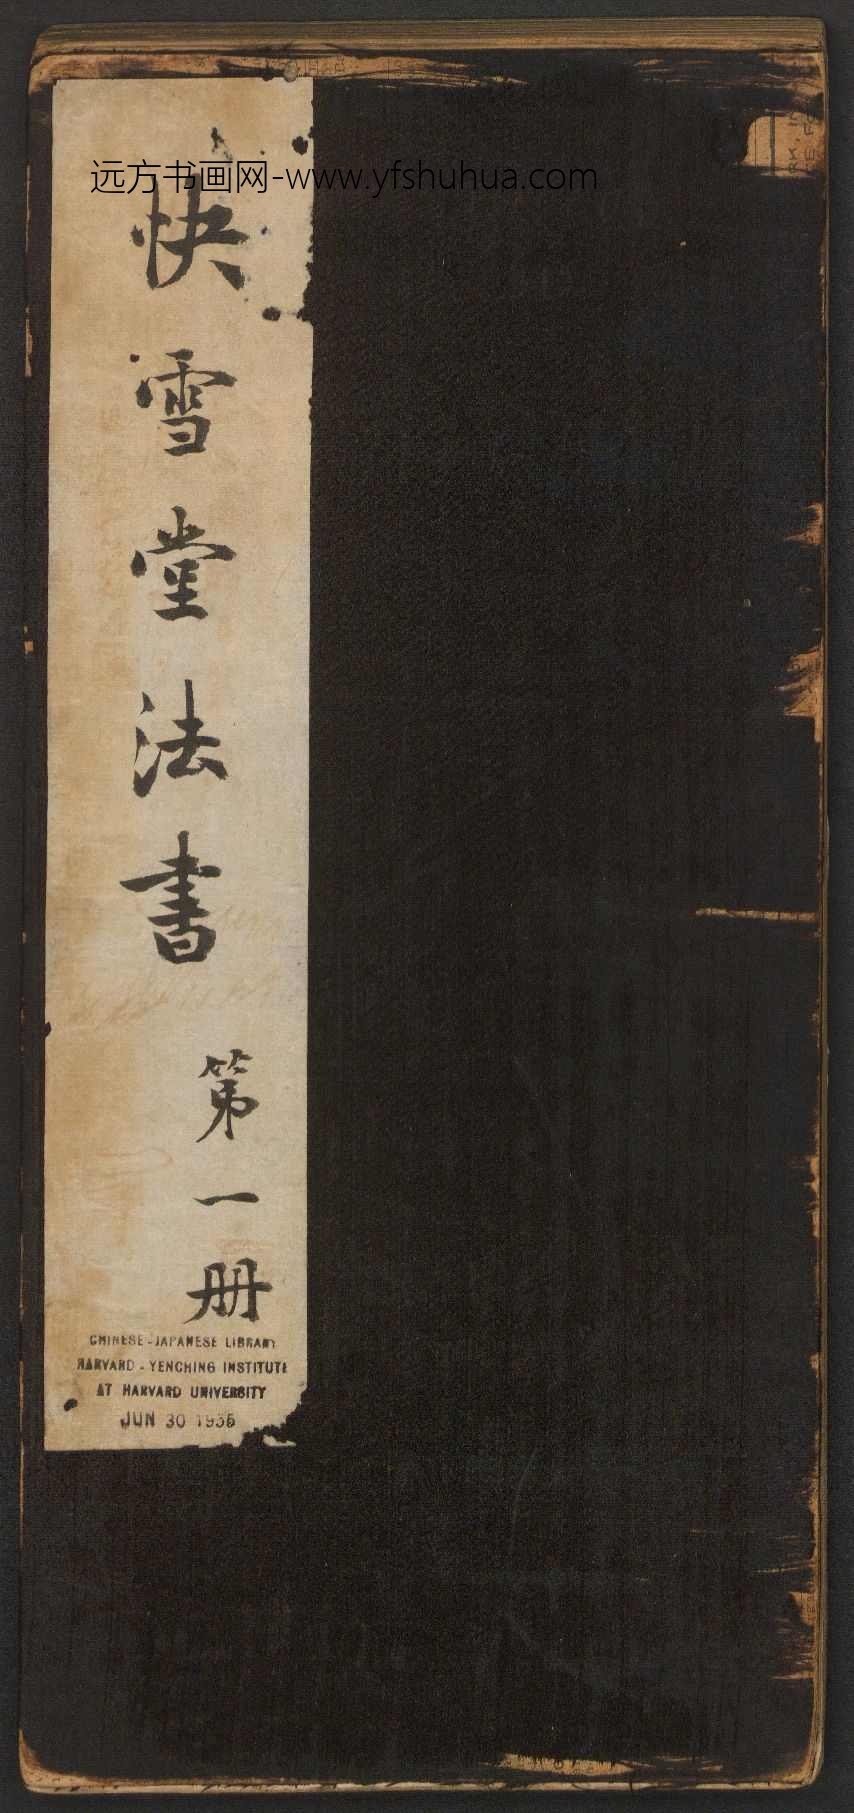 远方书画网-www.yfshuhua.com
快雪堂法書
第一册
CHINESE-JAPANESE LIBRARY
HARVARD-YENCHING INSTITUTE
AT HARVARD UNIVERSITY
JUN 30 1935